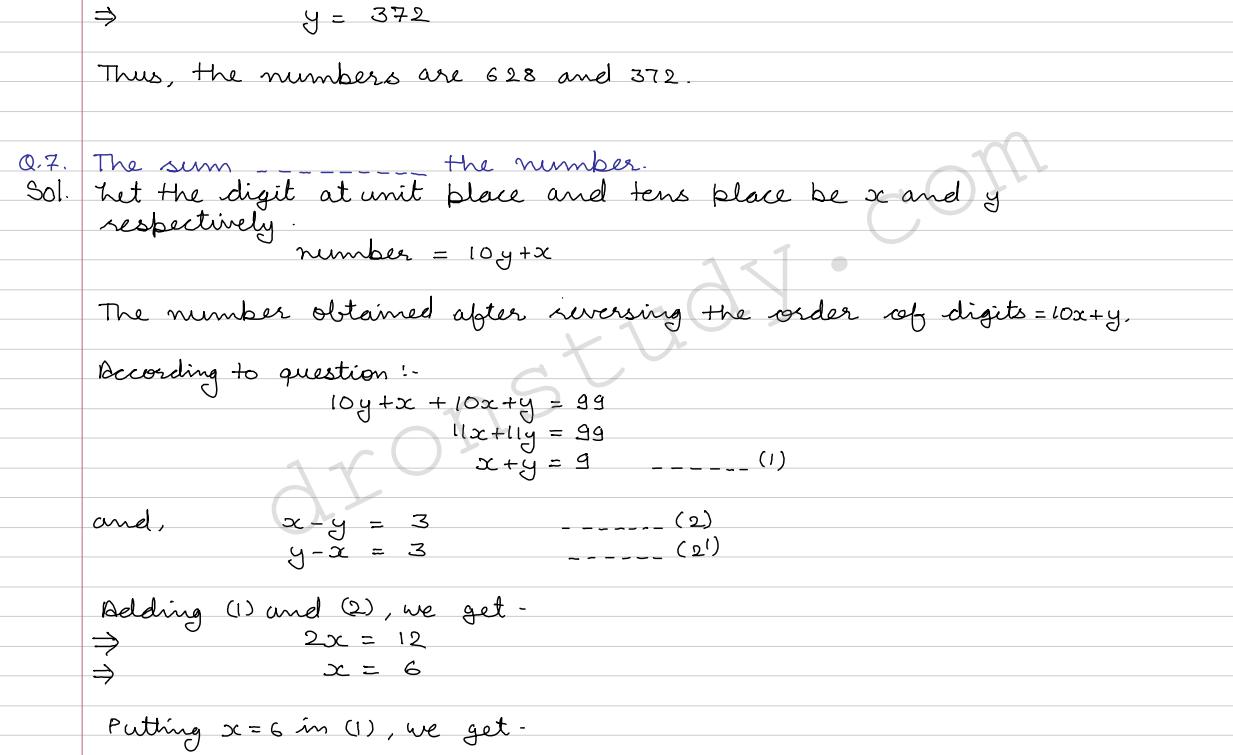 ⇒ y = 372
Thus, the numbers are 628 and 372.
Q.7. The sum _ _ _ _ _ _ _ _ _ the number.
Sol. Let the digit at unit place and tens place be x and y
respectively.
number = 10y+x
The number obtained after reversing the order of digits = 10x+y.
According to question :-
10y+x + 10x+y = 99
11x+11y = 99
x+y = 9 _ _ _ _ _ _ (1)
and, x-y = 3 _ _ _ _ _ _ _ (2)
y-x = 3 _ _ _ _ _ _ (2')
Adding (1) and (2), we get -
⇒ 2x = 12
⇒ x = 6
Putting x=6 in (1), we get -
dronstudy.com